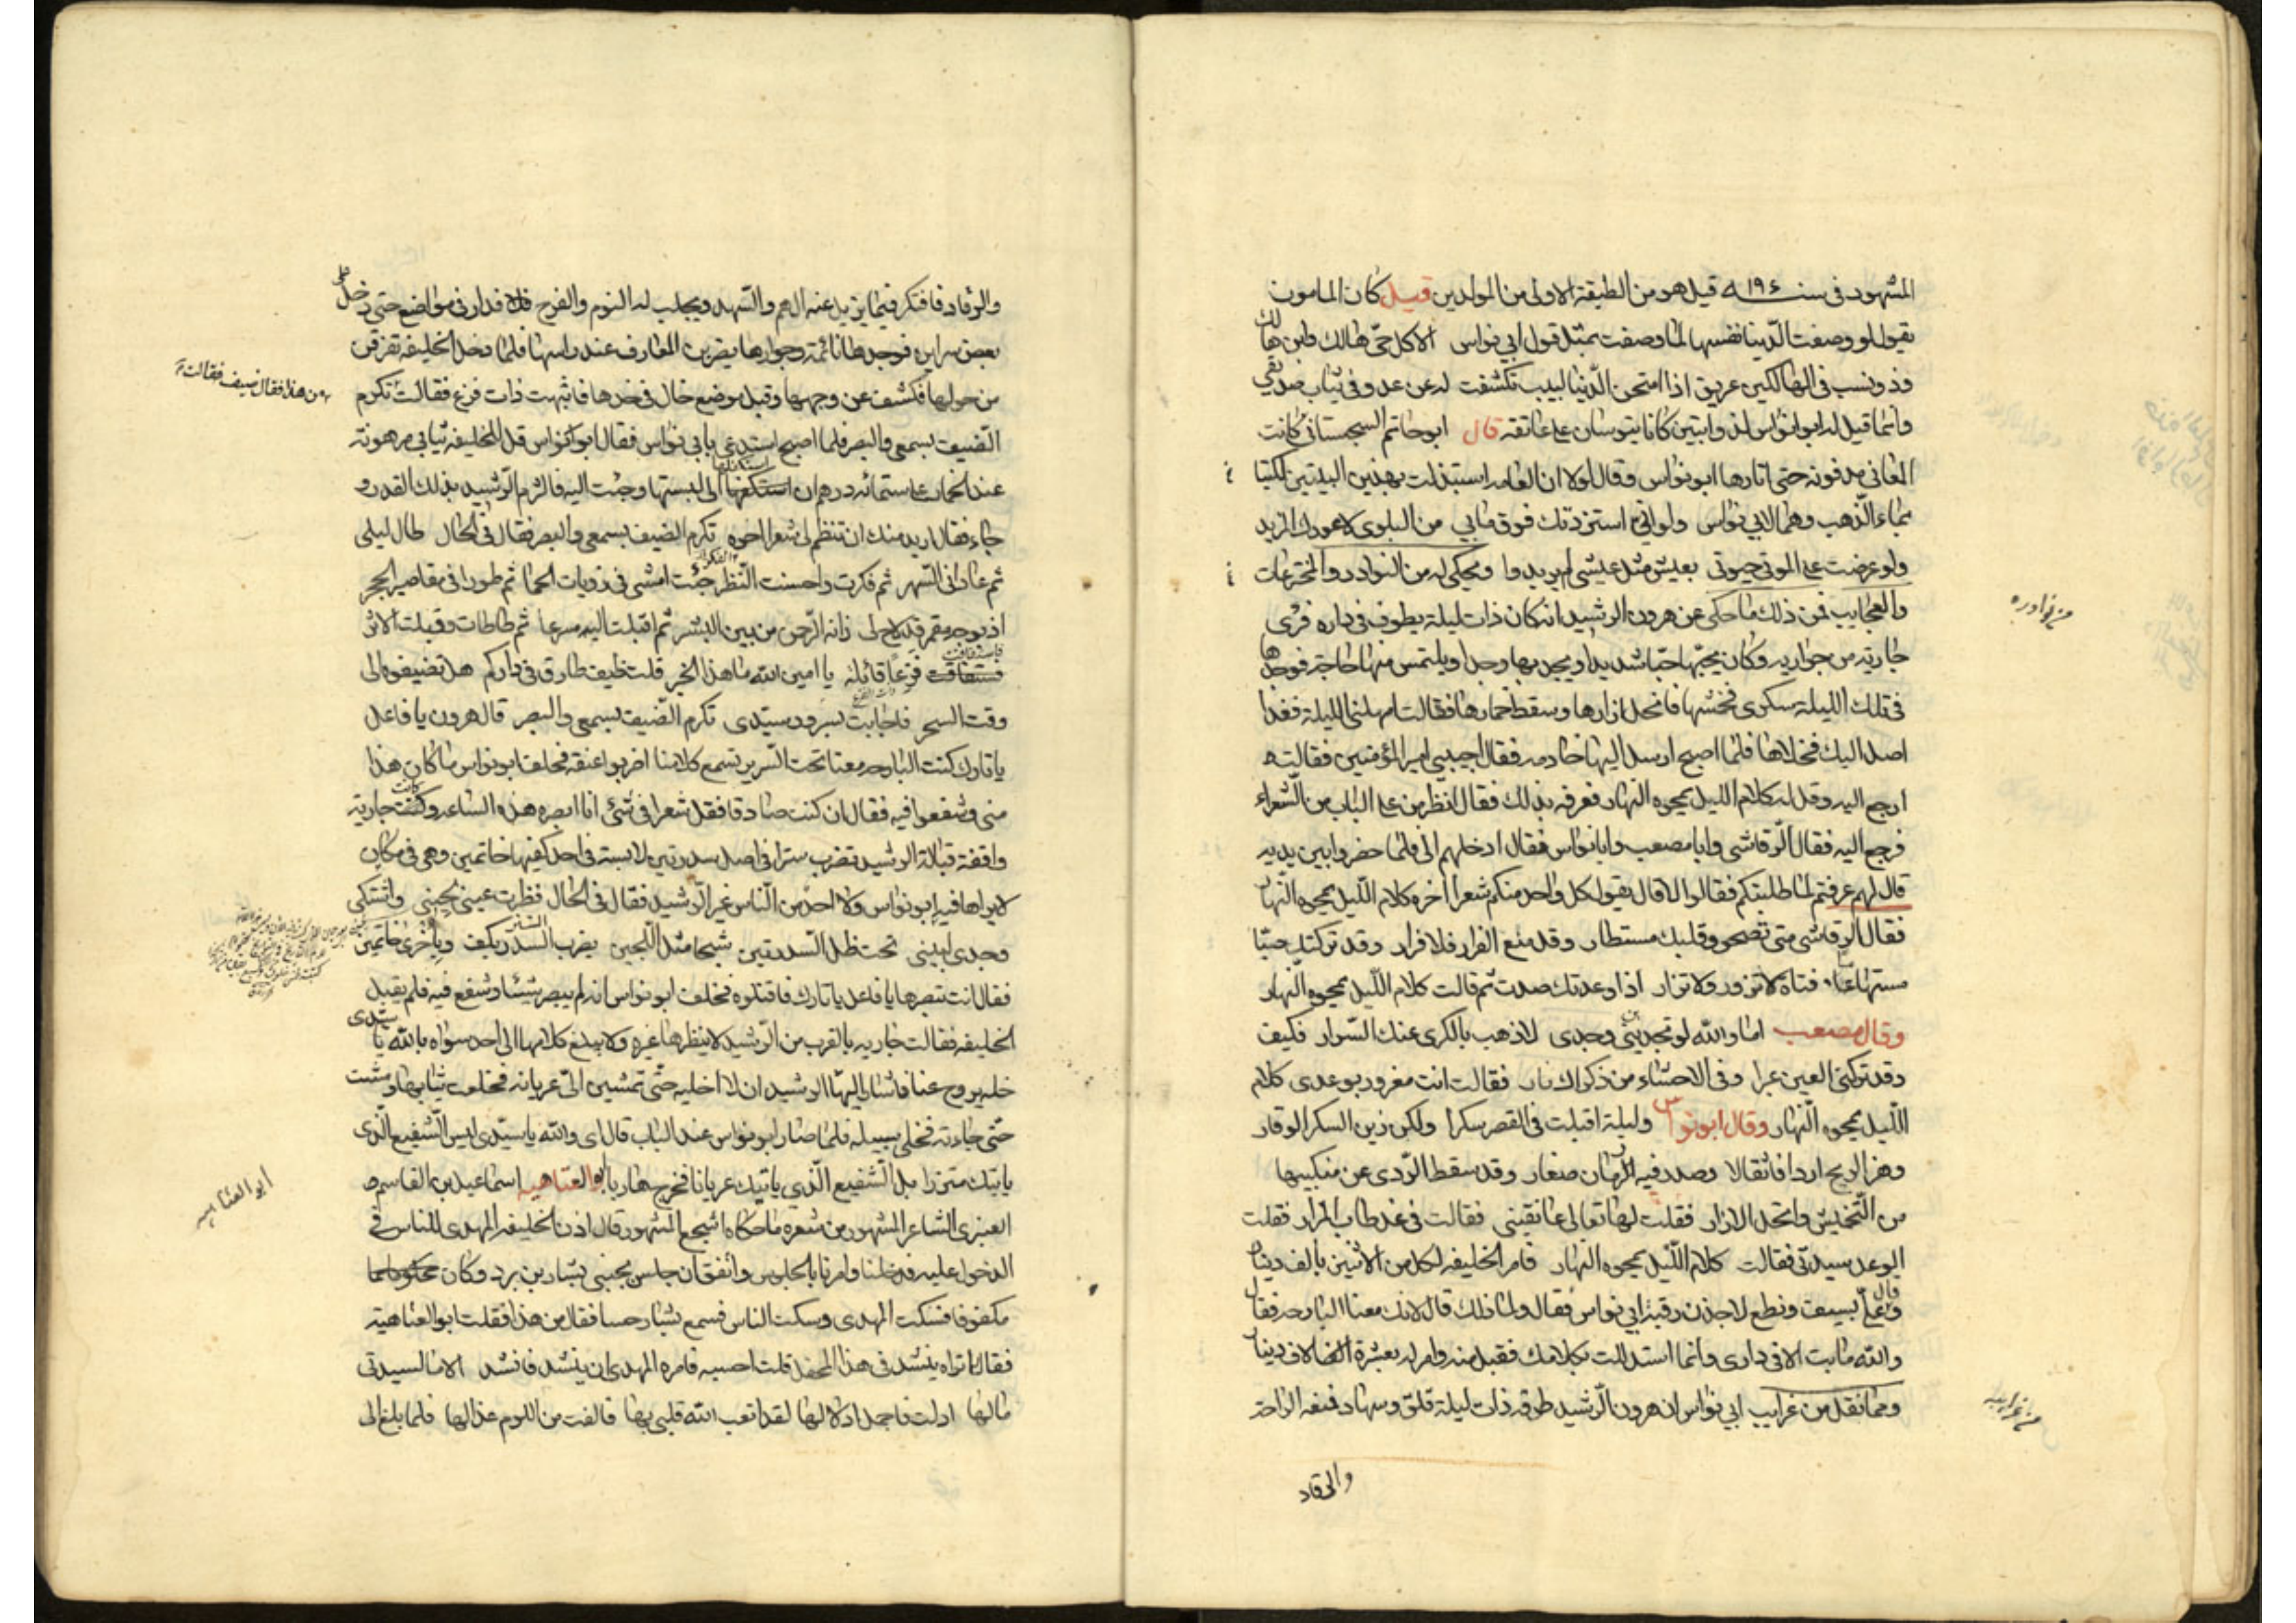 المشهود في سنة ١٩٤ قيل هو من الطبقة الاولى من المولدين قيل كان المامون
يقول لو وصفت الدنيا نفسها لما وصفت بمثل قول ابي نواس الا كل حي هالك وابن هالك
وذو نسب في الهالكين عريق اذا امتحن الدنيا لبيب تكشفت له عن عدو في ثياب صديق
وانما قيل له ابو نواس لذوابتين كانا ينوسان على عاتقه قال ابو حاتم السجستاني كانت
المعاني مدفونة حتى اثارها ابو نواس وقال لولا ان العامه استبذلت بهذين البيتين لكتبا
بماء الذهب وهما لابي نواس ولو اني استزدتك فوق ما بي من البلوى لاعوزك المزيد
ولو عرضت على الموتى حيوتي بعيش مثل عيشي لم يريدوا ويحكى له من النوادر والمخترعات
والعجايب فمن ذلك ما حكي عن هرون الرشيد انه كان ذات ليلة يطوف في داره فرى
جارية من جواريه وكان يحبها حبا شديدا ويجد بها وجدا ويلتمس منها حاجة فوجدها
في تلك الليلة سكرى فخشها فانحل ازارها وسقط خمارها فقالت امهلني الليلة فغدا
اصل اليك فخلاها فلما اصبح ارسل اليها خادمه فقال اجيبي امير المؤمنين فقالت
ارجع اليه وقل له كلام الليل يمحوه النهار فعرفه بذلك فقال انظر من على الباب من الشعراء
فرجع اليه فقال الرقاشي وابا مصعب وابا نواس فقال ادخلهم الي فلما حضروا بين يديه
قال لهم عرفتم لما طلبتكم فقالوا لا قال يقول كل واحد منكم شعرا اخره كلام الليل يمحوه النهار
فقال الرقاشي متى تصحو وقلبك مستطار وقد منع القرار فلا قرار وقد تركتك صبا
مستهاما فتاة لا تزور ولا تزار اذا وعدتك صدت ثم قالت كلام الليل يمحوه النهار
وقال مصعب اما والله لو تجدين وجدي لاذهب بالكرى عنك السوار فكيف
وقد تركتي العين عبرا وفي الاحشاء من ذكراك نار فقالت انت مغرور بوعدي كلام
الليل يمحوه النهار وقال ابو نواس وليلة اقبلت في القصر سكرا ولكن زين السكر الوقار
وهز الريح اردافا ثقالا وصدر فيه رمان صغار وقد سقط الردى عن منكبيها
من التخميش وانحل الازار فقلت لها تعالي عانقيني فقالت في غد طاب المزار فقلت
الوعد سيدتي فقالت كلام الليل يمحوه النهار فامر الخليفه لكل من الاثنين بالف دينار
وقال علي بسيف ونطع لاخذن رقبة ابي نواس فقال ولما ذلك قال لانك معنا البارحه فقال
والله ما بت الا في داري وانما استدللت بكلامك فقبل منه وامر له بعشرة الاف دينار
ومما نقل من غرايب ابي نواس ان هرون الرشيد طرقه ذات ليلة قلق وسهاد فمنعه الراحة
والرقاد
من نوادره
من غرايبه
والرقاد فافتكر فيما يزيل عنه الهم والسهد ويجلب له النوم والفرح فدار في مواضع حتى دخل على
بعض سرايره فوجدها نائمة وجوارها يضربن المعارف عند راسها فلما دخل الخليفة تفرقن
من حولها فكشف عن وجهها وقبل موضع خال في خدها فانتبهت ذات فزع فقالت تكرم
من هذا فقال ضيف فقالت
الضيف بسمعي والبصر فلما اصبح استدعى بابي نواس فقال ابو نواس قل للخليفه ثيابي مرهونة
عند الخمار على ستمائه درهم ان استفكها الي لبستها وجئت اليه فالزم الرشيد بذلك القدر و
جاء فقال اريد منك ان تنظم لي شعرا اخره تكرم الضيف بسمعي والبصر فقال في الحال طال ليلي
ثم عاداني السهر ثم فكرت واحسنت النظر جئت امشي في زويات الحما ثم طورا في مقاصير الحجر
اذ بوجه قمر قد لاح لي زانه الرحمن من بين البشر ثم اقبلت اليه مسرعا ثم طاطات وقبلت الاثر
فاستفاقت فزعا قائلة يا امين الله ما هذا الخبر قلت ضيف طارق في داركم هل تضيفوه الى
وقت السحر فاجابت بسرور سيدي تكرم الضيف بسمعي والبصر قال هرون يا فاعل
يا تارك كنت البارحه معنا تحت السرير تسمع كلامنا اضربوا عنقه فحلف ابو نواس ما كان هذا
مني وشفعوا فيه فقال ان كنت صادقا فقل شعرا في شئ انا ابصره هذه الساعه وكانت جارية
واقفة قبالة الرشيد تضرب سترا في اصل سدرتين لابسة في احد كفيها خاتمين وهي في مكان
لا يراها فيه ابو نواس ولا احد من الناس غير الرشيد فقال في الحال نظرت عيني لحيني واشتكى
وجدي لبيني تحت ظل السدرتين شبحا مثل اللجين يضرب الستر بكف وباخرى خاتمين
فقال انت تبصرها يا فاعل يا تارك فاقتلوه فحلف ابو نواس انه لم يبصر شيئا وشفع فيه فلم يقبل
الخليفه فقالت جاريه بالقرب من الرشيد لا ينظرها غيره ولا يبلغ كلامها الى احد سواه بالله يا سيدي
خله يروح عنا فاشار اليها الرشيد ان لا اخليه حتى تمشين الي عريانه فخلعت ثيابها ومشت
حتى جاءته فخلى سبيله فلما صار ابو نواس عند الباب قال اي والله يا سيدي ليس الشفيع الذي
ياتيك متزرا مثل الشفيع الذي ياتيك عريانا فخرج هاربا ابو العتاهيه اسماعيل بن القاسم
العنبري الشاعر المشهور من شعره ما حكاه اشجع المشهور قال اذن الخليفه المهدي للناس في
ابو العتاهيه
الدخول عليه فدخلنا وامرنا بالجلوس واتفق ان جلس بجنبي بشار بن برد وكان
مكفوفا فسكت المهدي وسكت الناس فسمع بشار حسا فقال من هذا فقلت ابو العتاهية
فقال اتراه ينشد في هذا المحفل قلت احسبه فامره المهدي ان ينشد فانشد الا ما لسيدتي
مالها ادلت فاجمل ادلالها لقد اتعب الله قلبي بها فالفت من اللوم عذالها فلما بلغ الى